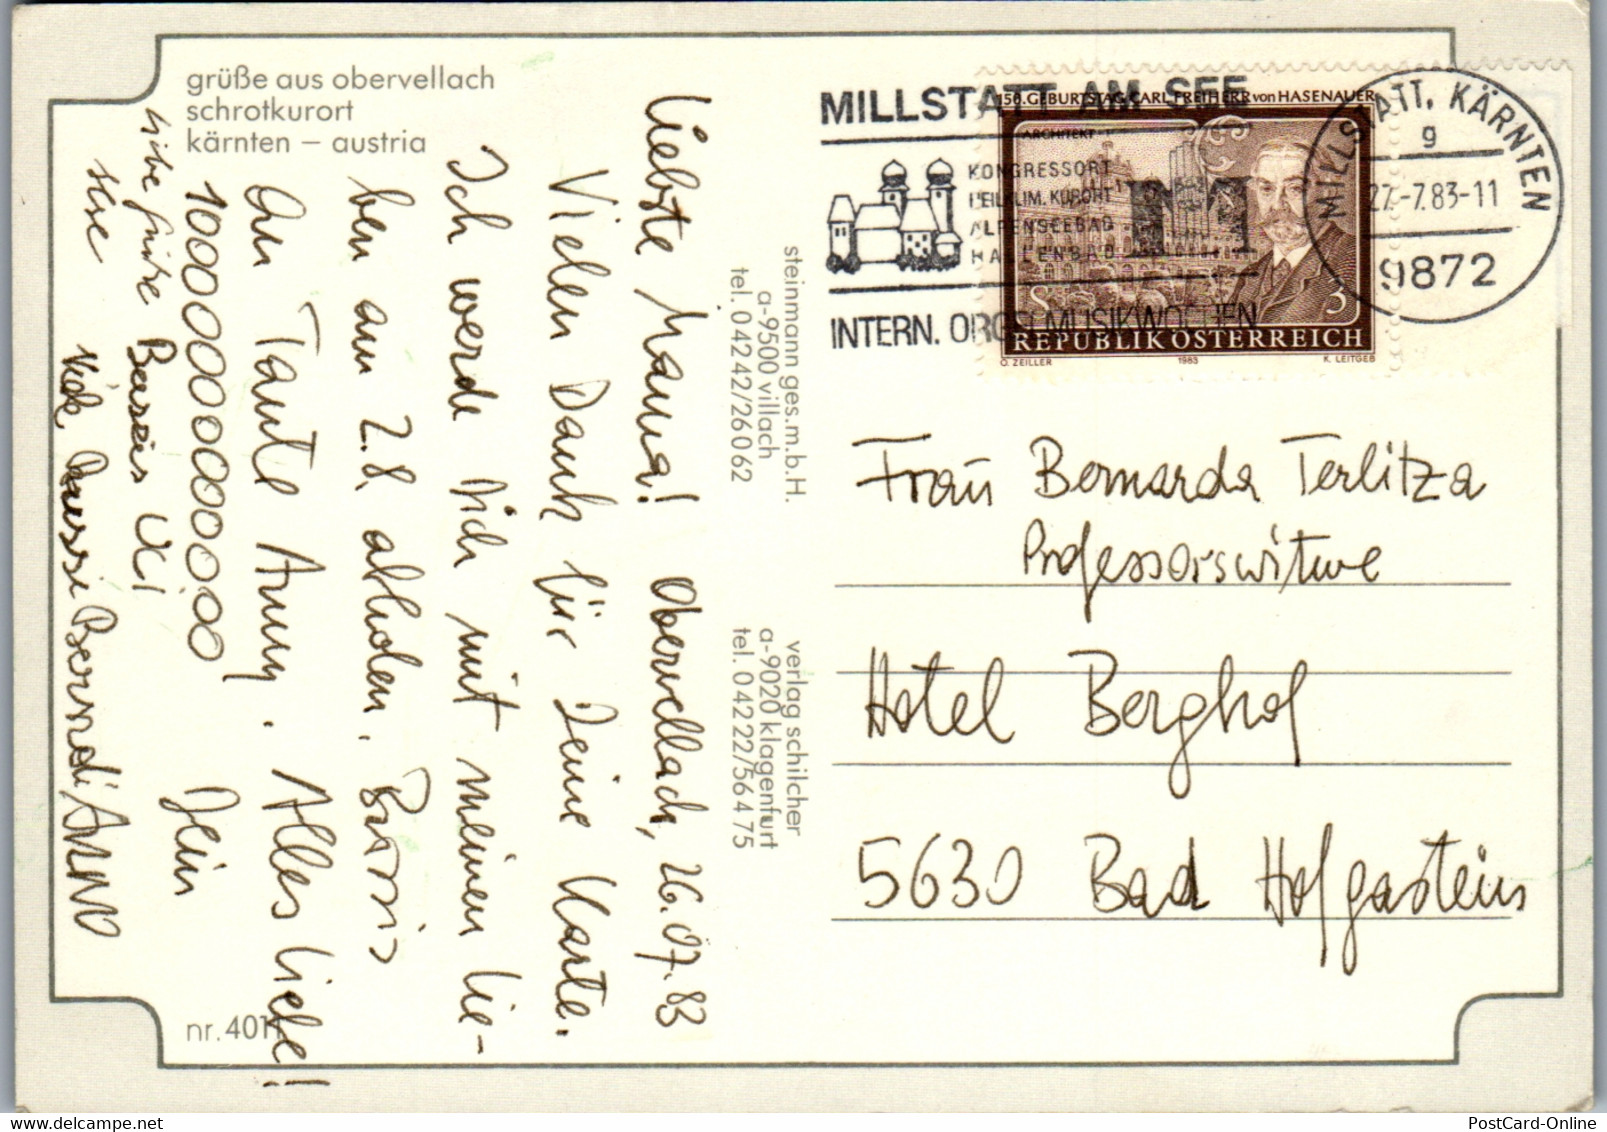 grüße aus obervellach
schrotkurort
kärnten – austria
Liebste Mama! Obervellach, 26.07.83
Vielen Dank für Deine Karte.
Ich werde Dich mit meinen Lie-
ben am 2.8. abholen. Bussis
an Tante Anny. Alles Liebe!
1000000000000,00 Dein
liebe Bussis Uli
Viele Bussi Berndi
nr. 4011
steinmann ges.m.b.H.
a-9500 villach
tel. 04242/26062
verlag schilcher
a-9020 klagenfurt
tel. 04222/56475
MILLSTATT AM SEE
KONGRESSORT
HEILKLIM. KURORT
ALPENSEEBAD
HALLENBAD
INTERN. ORGELMUSIKWOCHEN
150. GEBURTSTAG CARL FREIHERR von HASENAUER
ARCHITEKT
S 3
REPUBLIK ÖSTERREICH
O. ZEILLER 1983 K. LEITGEB
MILLSTATT, KÄRNTEN
g
27.-7.83-11
9872
Frau Bernarda Terlitza
Professorswitwe
Hotel Berghof
5630 Bad Hofgastein
PostCard-Online